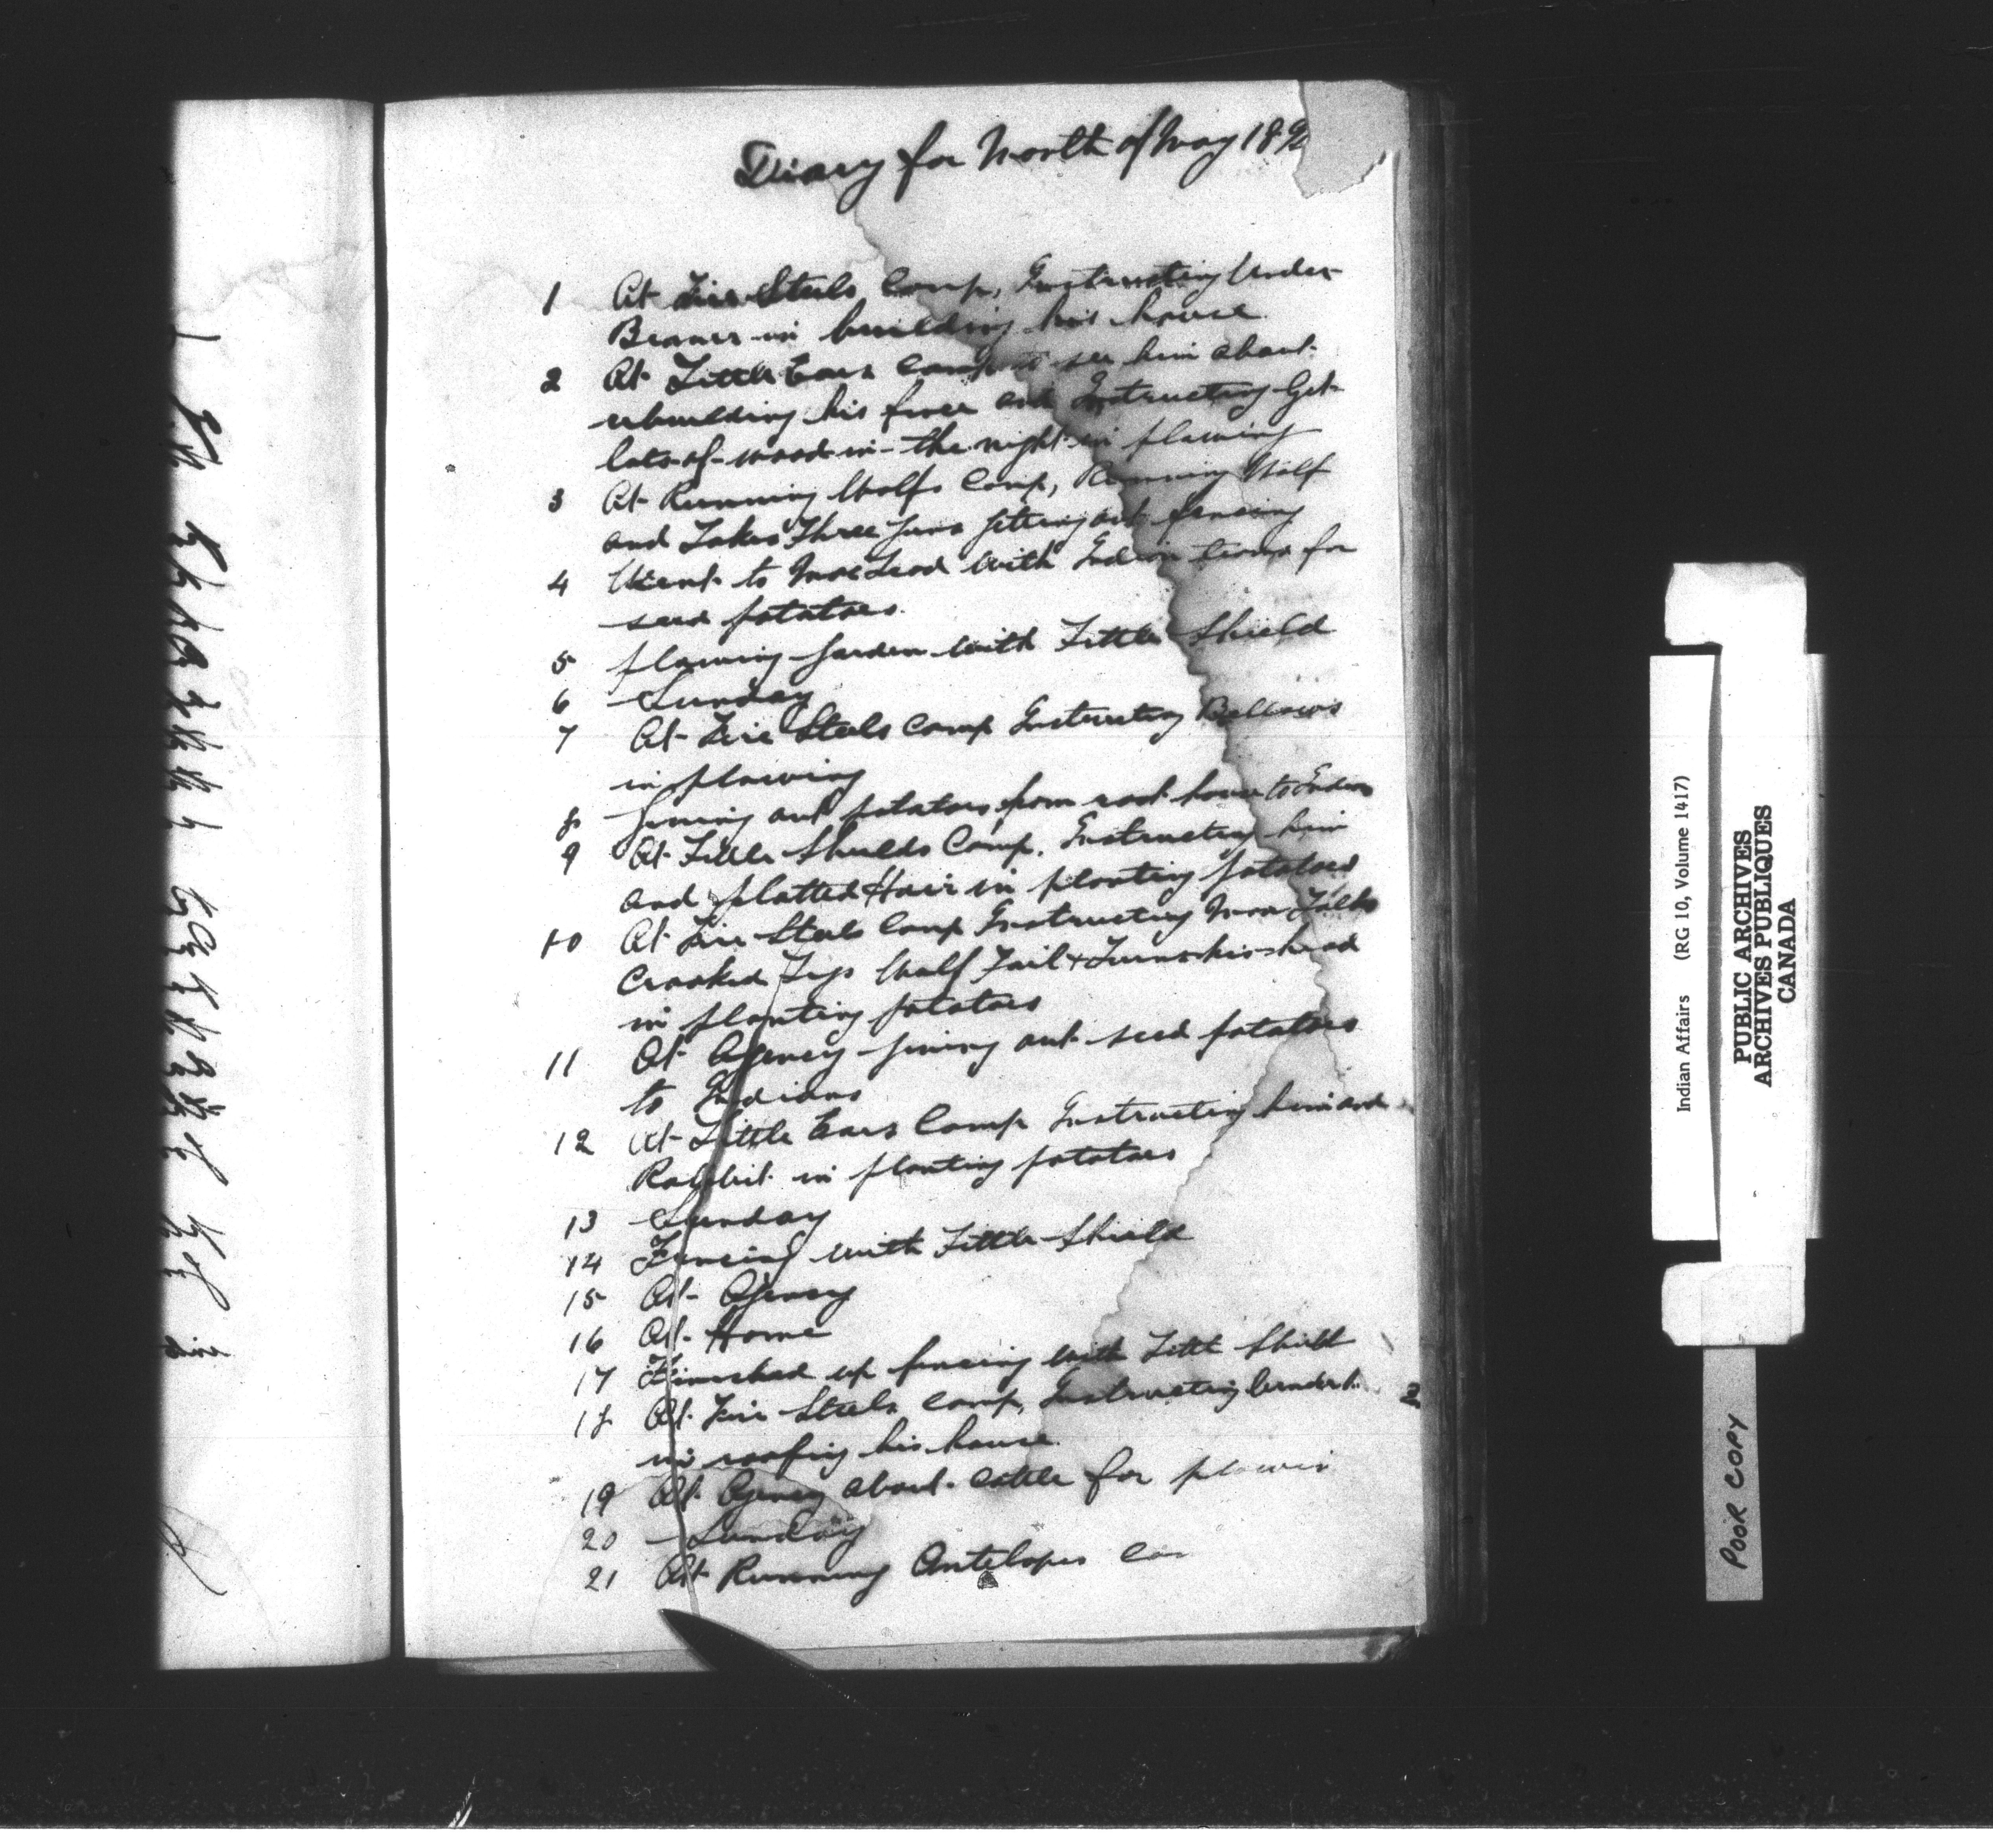 Diary for Month of May 189
1 At Fire Steels Camp, Instructing Under
Beaver in building his house
2 At Little Ears camp to see him about
rebuilding his fence and Instructing Get
lots-of-wood-in-the night in plowing
3 At Running Wolfs Camp, Running Wolf
and Takes Three Guns getting out fencing
4 Went to MacLeod with Indian teams for
seed potatoes.
5 plowing garden with Little Shield
6 Sunday
7 At Fire Steels Camp Instructing Bellows
in plowing
8 Giving out potatoes from root house to Indians
9 At Little Shields Camp. Instructing him
and Platted Hair in planting potatoes
10 At Fire Steels Camp Instructing Talks
Crooked Legs Wolf Tail + Turns-his-head
in planting potatoes
11 At Agency giving out seed potatoes
to Indians
12 At Little Ears Camp Instructing him and
Rabbit in planting potatoes
13 Sunday
14 Fencing with Little Shield
15 At Agency
16 At Home
17 Finished up fencing with Little Shield
18 At Fire Steels Camp, Instructing
in roofing his house.
19 At Agency about cattle for plowin
20 Sunday
21 At Running Antelopes
Indian Affairs (RG 10, Volume 1417)
PUBLIC ARCHIVES
ARCHIVES PUBLIQUES
CANADA
POOR COPY